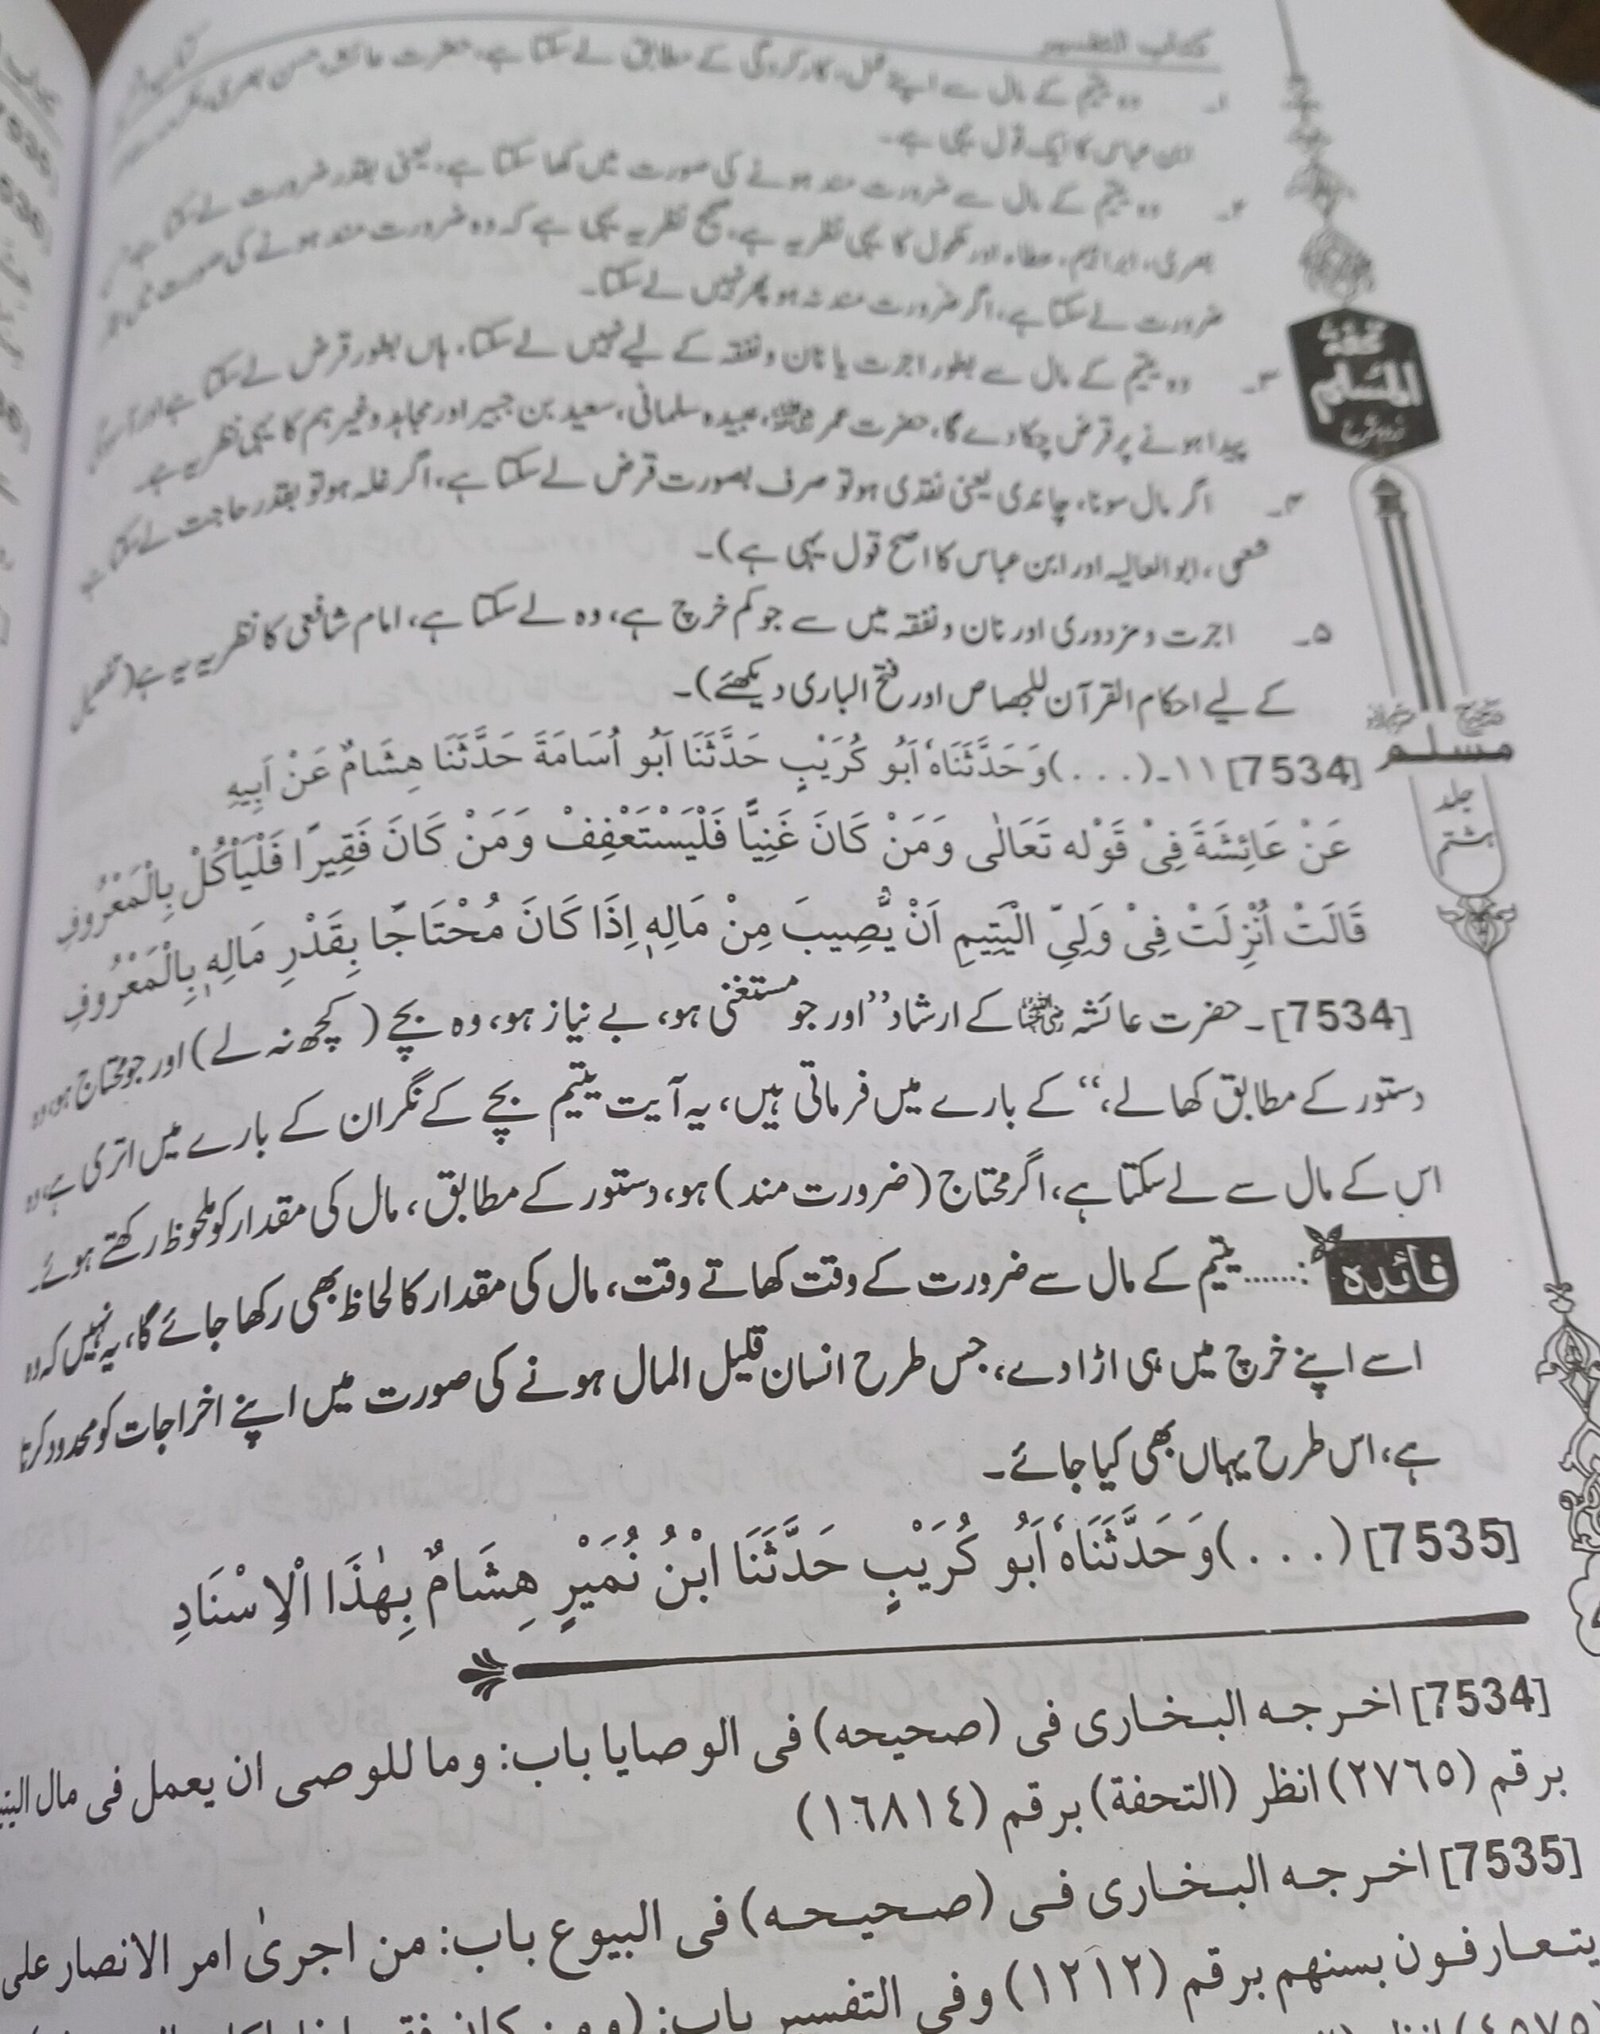 کتاب التفسیر
۱۔ وہ یتیم کے مال سے اپنے عمل، کارکردگی کے مطابق لے سکتا ہے، حضرت عائشہ، حسن بصری،
ابن عباس کا ایک قول یہی ہے۔
۲۔ وہ یتیم کے مال سے ضرورت مند ہونے کی صورت میں کھا سکتا ہے، یعنی بقدر ضرورت لے سکتا ہے،
بصری، ابراہیم، عطاء اور مکحول کا یہی نظریہ ہے، صحیح نظریہ یہی ہے کہ وہ ضرورت مند ہونے کی صورت میں
ضرورت لے سکتا ہے، اگر ضرورت مند نہ ہو پھر نہیں لے سکتا۔
۳۔ وہ یتیم کے مال سے بطور اجرت یا نان و نفقہ کے لیے نہیں لے سکتا، ہاں بطور قرض لے سکتا ہے اور آسودگی
پیدا ہونے پر قرض چکا دے گا، حضرت عمر رضی اللہ عنہ، عبیدہ سلمانی، سعید بن جبیر اور مجاہد وغیرہم کا یہی نظریہ ہے۔
۴۔ اگر مال سونا، چاندی یعنی نقدی ہو تو صرف بصورت قرض لے سکتا ہے، اگر غلہ ہو تو بقدر حاجت لے سکتا ہے
شعبی، ابو العالیہ اور ابن عباس کا اصح قول یہی ہے)۔
۵۔ اجرت و مزدوری اور نان و نفقہ میں سے جو کم خرچ ہے، وہ لے سکتا ہے، امام شافعی کا نظریہ یہ ہے (تفصیل
کے لیے احکام القرآن للجصاص اور فتح الباری دیکھئے)۔
[7534] ۱۱۔(...)وَحَدَّثَنَاهُ اَبُو كُرَيْبٍ حَدَّثَنَا اَبُو اُسَامَةَ حَدَّثَنَا هِشَامٌ عَنْ اَبِيهِ
عَنْ عَائِشَةَ فِىْ قَوْله تَعَالٰى وَمَنْ كَانَ غَنِيًّا فَلْيَسْتَعْفِفْ وَمَنْ كَانَ فَقِيرًا فَلْيَاْكُلْ بِالْمَعْرُوفِ
قَالَتْ اُنْزِلَتْ فِىْ وَلِىِّ الْيَتِيمِ اَنْ يُّصِيبَ مِنْ مَالِهٖ اِذَا كَانَ مُحْتَاجًا بِقَدْرِ مَالِهٖ بِالْمَعْرُوفِ
[7534]۔ حضرت عائشہ رضی اللہ عنہا کے ارشاد ”اور جو مستغنی ہو، بے نیاز ہو، وہ بچے (کچھ نہ لے) اور جو محتاج ہو، وہ
دستور کے مطابق کھا لے،“ کے بارے میں فرماتی ہیں، یہ آیت یتیم بچے کے نگران کے بارے میں اتری ہے، وہ
اس کے مال سے لے سکتا ہے، اگر محتاج (ضرورت مند) ہو، دستور کے مطابق، مال کی مقدار کو ملحوظ رکھتے ہوئے۔
فائدہ :...... یتیم کے مال سے ضرورت کے وقت کھاتے وقت، مال کی مقدار کا لحاظ بھی رکھا جائے گا، یہ نہیں کہ وہ
اسے اپنے خرچ میں ہی اڑا دے، جس طرح انسان قلیل المال ہونے کی صورت میں اپنے اخراجات کو محدود کرتا
ہے، اس طرح یہاں بھی کیا جائے۔
[7535] (...)وَحَدَّثَنَاهُ اَبُو كُرَيْبٍ حَدَّثَنَا ابْنُ نُمَيْرٍ هِشَامٌ بِهٰذَا الْاِسْنَادِ
[7534] اخرجه البخارى فى (صحيحه) فى الوصايا باب: وما للوصى ان يعمل فى مال
برقم (٢٧٦٥) انظر (التحفة) برقم (١٦٨١٤)
[7535] اخرجه البخارى فى (صحيحه) فى البيوع باب: من اجرىٰ امر الانصار على
يتعارفون بسنهم برقم (١٢١٢) وفى التفسير باب: (ومن كان
تحفة
المسلم
اردو شرح
صحیح
مسلم
جلد
ہشتم